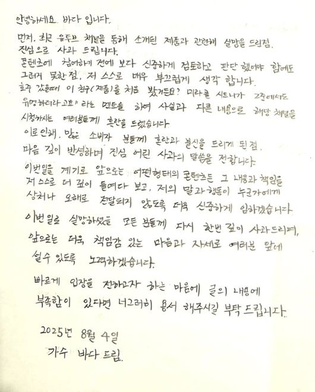 안녕하세요. 바다 입니다.
먼저, 최근 유튜브 채널을 통해 소개된 제품과 관련해 실망을 드린점.
진심으로 사과 드립니다.
콘텐츠에 참여하게 전에 보다 신중하게 검토하고 판단 했어야 함에도
그러지 못한 점, 저 스스로 매우 부끄럽게 생각 합니다.
호주 갔을때 이 현수(제품)를 처음 봤거든요? 미라클 시드니가 그곳에서도
유명하더라고요! 라는 멘트를 하여 사실과 다른 내용으로 해당 채널을
시청하시는 여러분들께 혼란을 드렸습니다
이로 인해, 많은 소비자 분들께 혼란과 불신을 드리게 된점.
마음 깊이 반성하며 진심 어린 사과의 말씀을 전합니다.
이번일을 계기로 앞으로는 어떤형태의 콘텐츠든 그 내용과 책임을
저 스스로 더 깊이 들여다 보고, 저의 말과 행동이 누군가에게
상처나 오해로 전달되지 않도록 더욱 신중하게 임하겠습니다.
이번일로 실망하셨을 모든 분들께 다시 한번 깊이 사과드리며,
앞으로는 더욱 책임감 있는 마음과 자세로 여러분 앞에
설수 있도록 노력하겠습니다.
빠르게 입장을 전하고자 하는 마음에 글의 내용에
부족함이 있다면 너그러히 용서 해주시길 부탁 드립니다.
2025년 8월 4일
가수 바다 드림.